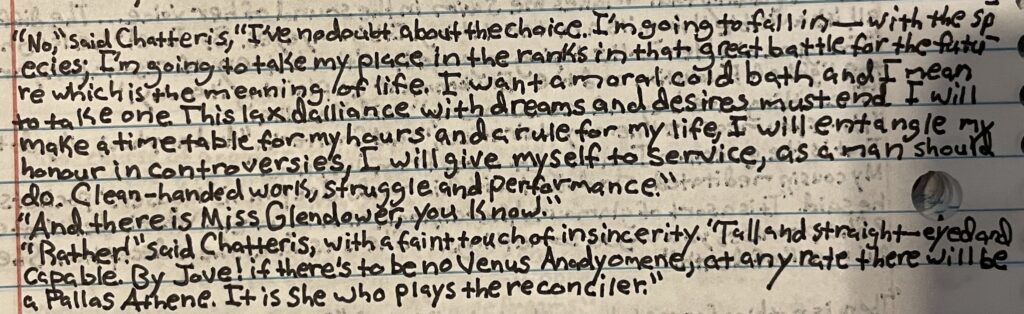 "No," said Chatteris, "I've no doubt about the choice. I'm going to fall in—with the sp
ecies; I'm going to take my place in the ranks in that great battle for the futu-
re which is the meaning of life. I want a moral cold bath and I mean
to take one. This lax dalliance with dreams and desires must end. I will
make a time table for my hours and a rule for my life, I will entangle my
honour in controversies, I will give myself to service, as a man should
do. Clean-handed work, struggle and performance."
"And there is Miss Glendower, you know."
"Rather!" said Chatteris, with a faint touch of insincerity. "Tall and straight-eyed and
capable. By Jove! if there's to be no Venus Anadyomene, at any rate there will be
a Pallas Athene. It is she who plays the reconciler."